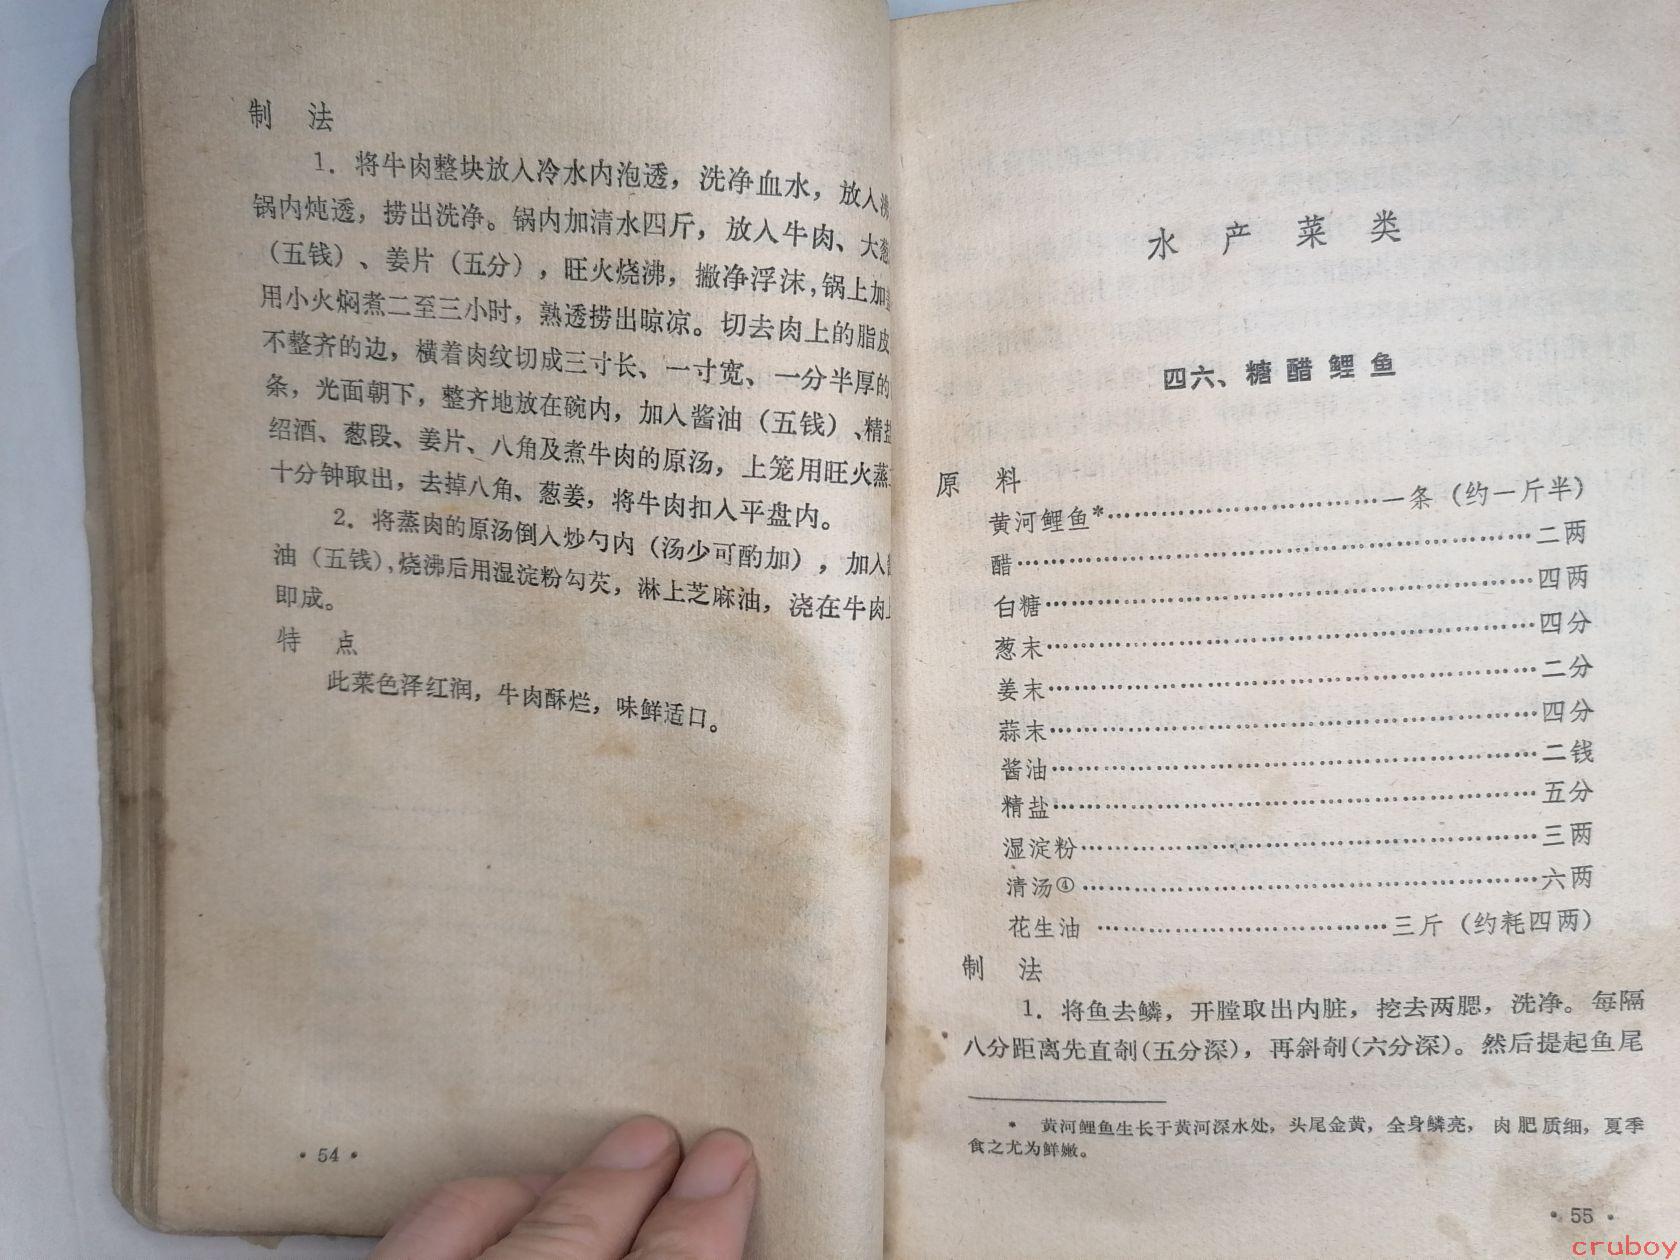 制 法
1．将牛肉整块放入冷水内泡透，洗净血水，放入沸
锅内炖透，捞出洗净。锅内加清水四斤，放入牛肉、大葱
（五钱）、姜片（五分），旺火烧沸，撇净浮沫，锅上加盖
用小火焖煮二至三小时，熟透捞出晾凉。切去肉上的脂皮
不整齐的边，横着肉纹切成三寸长、一寸宽、一分半厚的
条，光面朝下，整齐地放在碗内，加入酱油（五钱）、精盐
绍酒、葱段、姜片、八角及煮牛肉的原汤，上笼用旺火蒸
十分钟取出，去掉八角、葱姜，将牛肉扣入平盘内。
2．将蒸肉的原汤倒入炒勺内（汤少可酌加），加入酱
油（五钱），烧沸后用湿淀粉勾芡，淋上芝麻油，浇在牛肉上
即成。
特 点
此菜色泽红润，牛肉酥烂，味鲜适口。
• 54 •
水 产 菜 类
四六、糖醋鲤鱼
原 料
黄河鲤鱼*……………………………一条（约一斤半）
醋………………………………………………………二两
白糖……………………………………………………四两
葱末……………………………………………………四分
姜末……………………………………………………二分
蒜末……………………………………………………四分
酱油……………………………………………………二钱
精盐……………………………………………………五分
湿淀粉…………………………………………………三两
清汤④…………………………………………………六两
花生油 ………………………………三斤（约耗四两）
制 法
1．将鱼去鳞，开膛取出内脏，挖去两腮，洗净。每隔
八分距离先直剞(五分深)，再斜剞(六分深)。然后提起鱼尾
* 黄河鲤鱼生长于黄河深水处，头尾金黄，全身鳞亮，肉肥质细，夏季
食之尤为鲜嫩。
• 55 •
cruboy